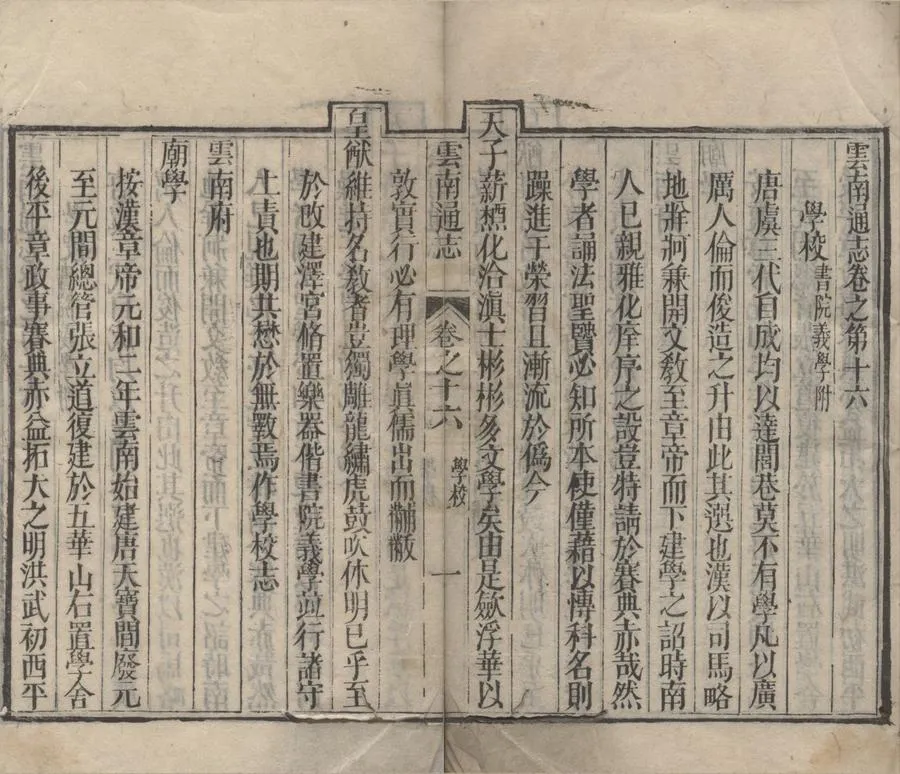 雲南通志卷之第十六
學校 書院義學附
唐虞三代自成均以達閭巷莫不有學凡以廣
厲人倫而俊造之升由此其選也漢以司馬略
地牂牁兼開文教至章帝而下建學之詔時南
人已親雅化庠序之設豈特請於賽典赤哉然
學者誦法聖賢必知所本使僅藉以愽科名則
躁進于榮習且漸流於僞今
天子薪槱化洽滇士彬彬多文學矣由是歛浮華以
雲南通志 卷之十六 學校 一
敦實行必有理學眞儒出而黼黻
皇猷維持名敎者豈獨雕龍繡虎鼓吹休明已乎至
於改建澤宮脩置樂器偕書院義學並行諸守
土責也期共懋於無斁焉作學校志
雲南府
廟學
按漢章帝元和二年雲南始建唐天寶間廢元
至元間總管張立道復建於五華山右置學舍
後平章政事賽典赤益拓大之明洪武初西平